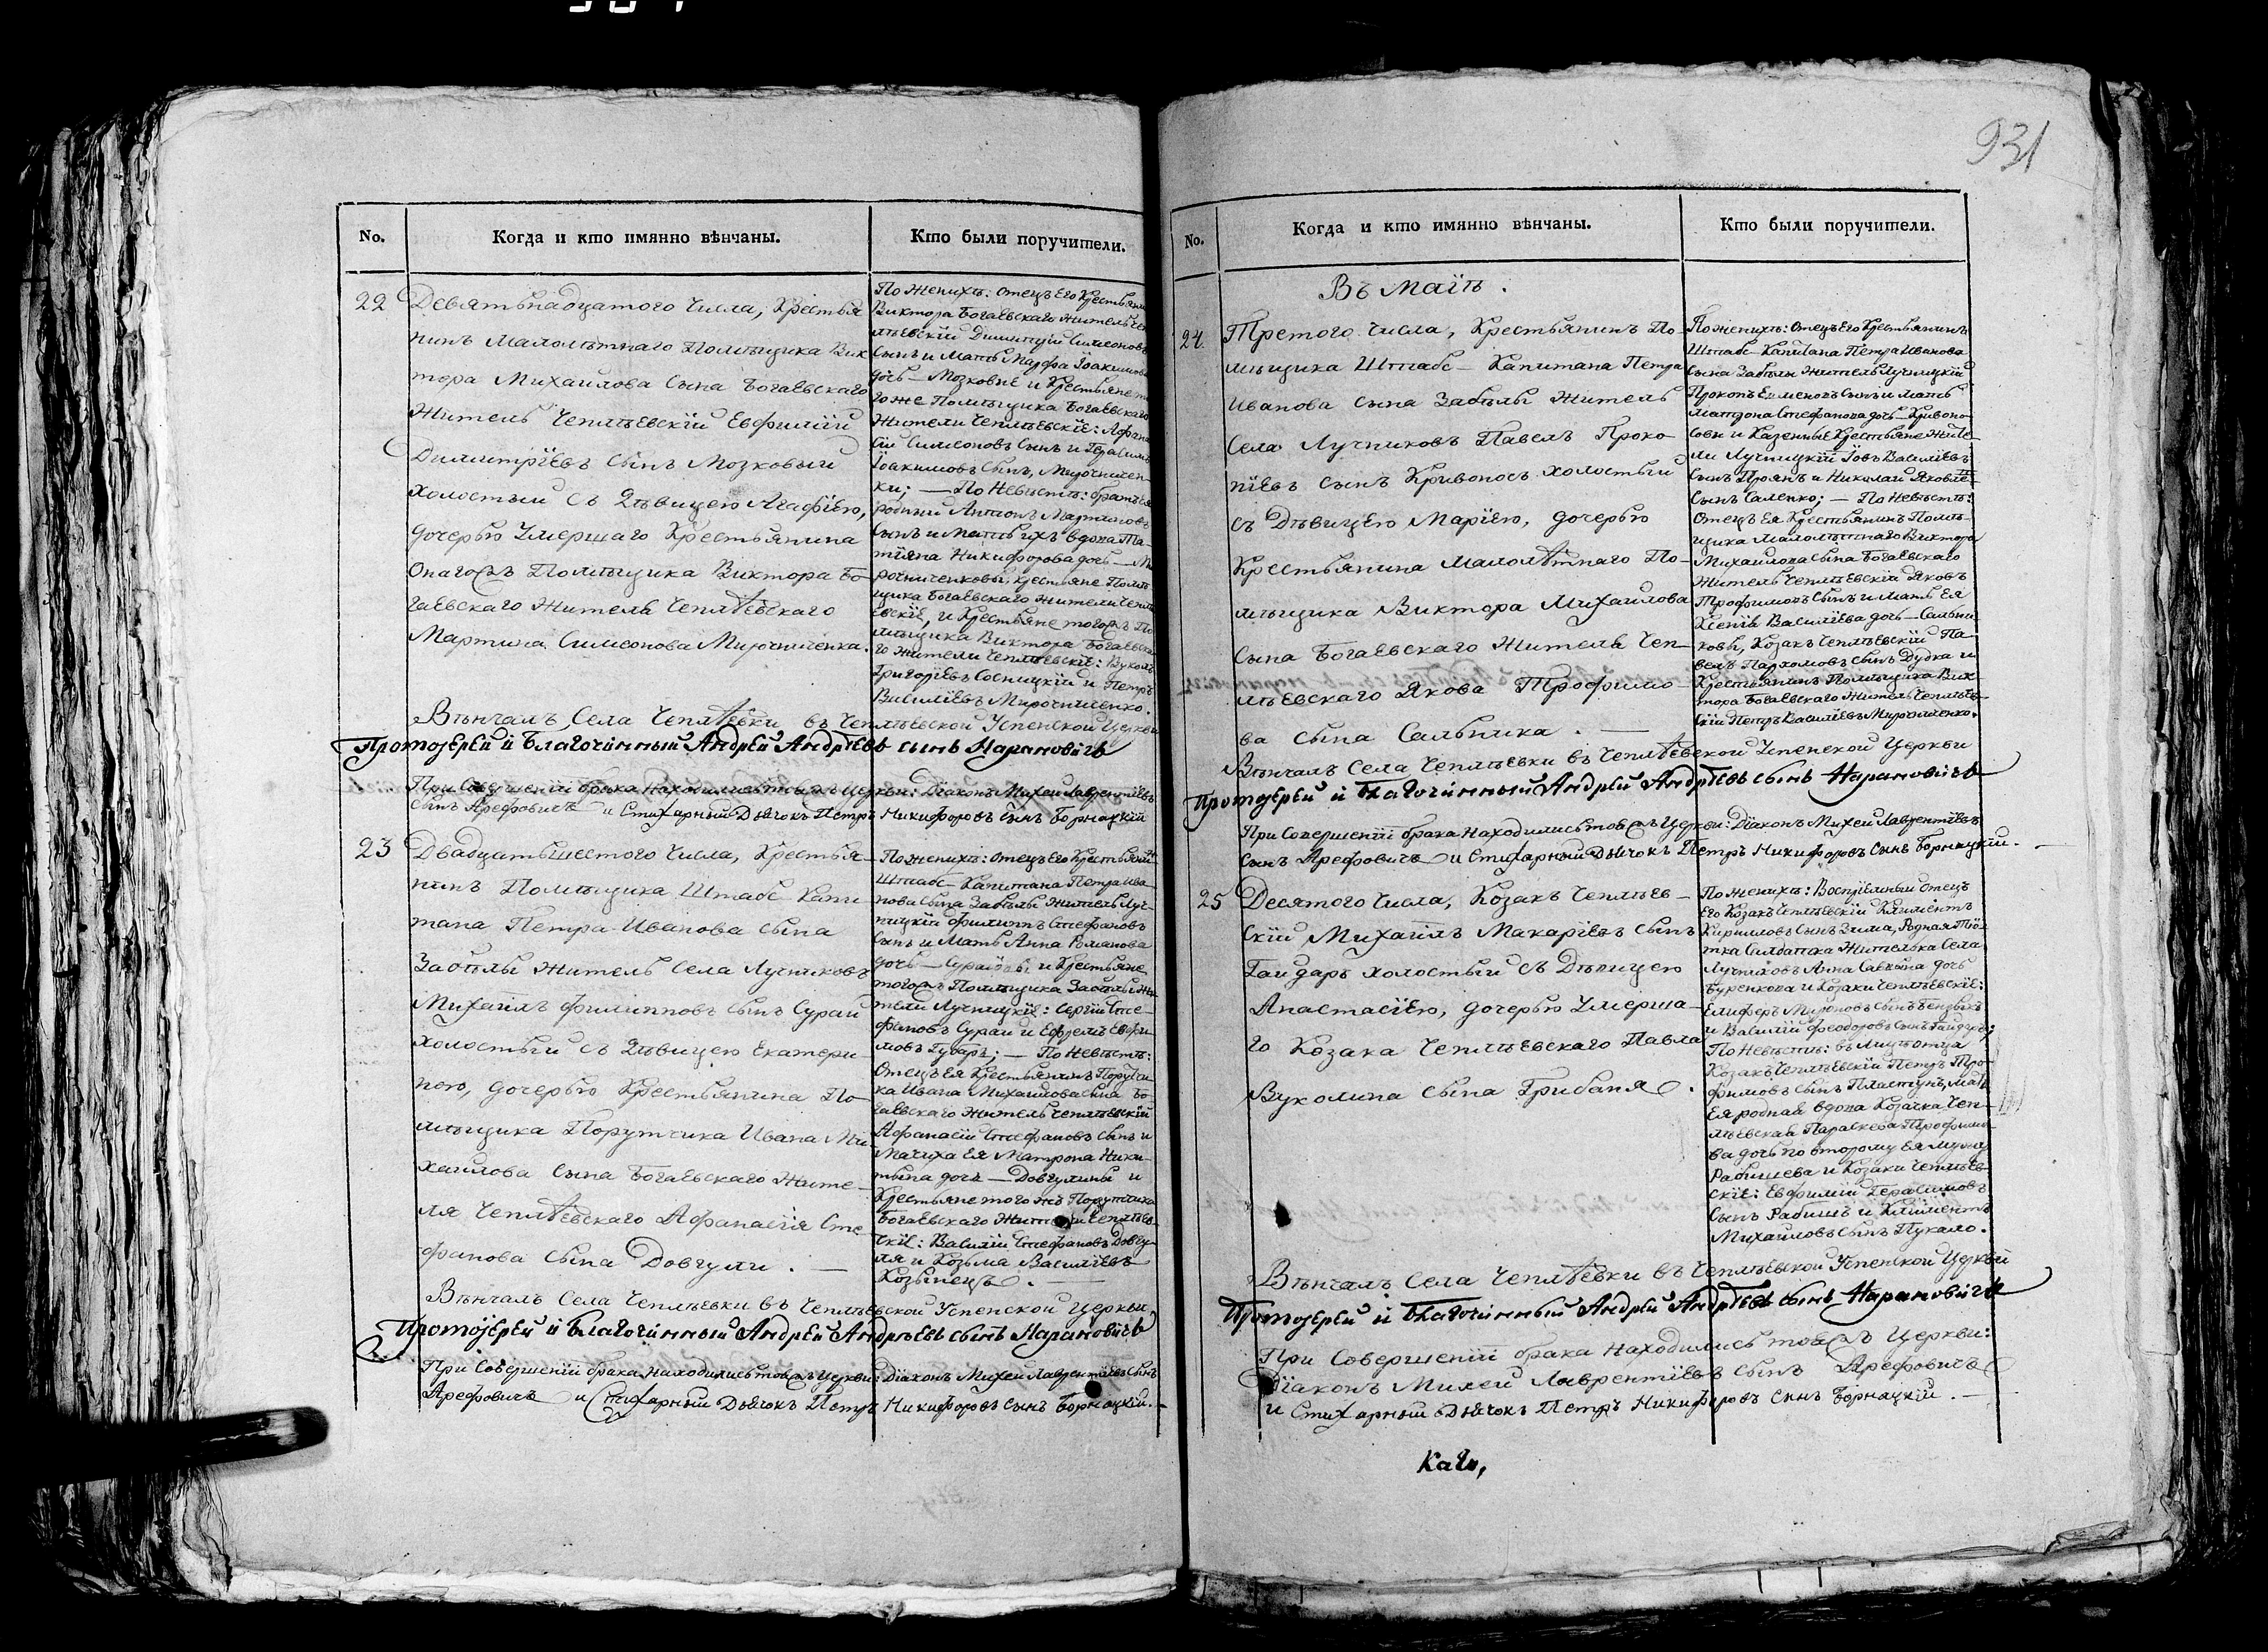 931
No.
Когда и кто имянно вѣнчаны.
Кто были поручители.
22
Девятьнадцатого Числа, Крестья
нинъ Малолѣтнаго Помѣщика Вик
тора Михаилова Сына Богаевскаго
Житель Чеплѣевскїй Евфимїй
Димитрїевъ Сынъ Мозковый
холостый съ Дѣвицею Агафїею,
дочерью Умершаго Крестьянина
Онагожъ Помѣщика Виктора Бо
гаевскаго Жителя Чеплѣевскаго
Мартина Симеонова Мирочниченка.
По Женихѣ: Отецъ Его Крестьянин
Виктора Богаевскаго Житель Че
плѣевскїй Димитрїй Симеоновъ
Сынъ и Мать Марфа Їоакимова
дочь — Мозковые и Крестьяне то
гоже Помѣщика Богаевскаго
Жители Чеплѣевскїе: Афана
сїй Симеоновъ Сынъ и Герасимъ
Їоакимовъ Сынъ, Мирочничен-
ки; — По Невѣстѣ: братъ ея
родный Антонъ Мартиновъ
Сынъ и мать ихъ вдова Та
тїяна Никифорова дочь — Ми
рочниченковы, крестьяне Помѣ
щика Богаевскаго Жители Чеплѣ
евскїе, и Крестьяне тогожъ По
мѣщика Виктора Богаевска
го Жители Чеплѣевскїе: Вуколъ
Григорїевъ Сосницкїй и Петръ
Василїевъ Мирочниченко.
Вѣнчалъ Села Чеплѣевки въ Чеплѣевской Успенской Церкви
Протоїерей и Благочинный Андрей Андрѣевъ сынъ Нарановичъ
При Совершенїи брака находились тояжъ Церкви: Дїаконъ Михей Лаврентїевъ
Сынъ Арефовичъ и Стихарный Дьячокъ Петръ Никифоровъ Сынъ Борнацкїй
23
Двадцатьшестого Числа, Крестья-
нинъ Помѣщика Штабс Капи
тана Петра Иванова Сына
Забѣлы Житель Села Лучниковъ
Михаилъ Филипповъ Сынъ Сурай
холостый съ Дѣвицею Екатери
ною, дочерью Крестьянина По-
мѣщика Порутчика Ивана Ми-
хаилова Сына Богаевскаго Жите-
ля Чеплѣевскаго Афанасїя Сте
фанова Сына Довгули. —
По Женихѣ: Отецъ Его Крестьянин
Штабс-Капитана Петра Ива-
нова Сына Забѣлы Житель Луч-
ницкїй Филиппъ Стефановъ
Сынъ и Мать Анна Романова
дочь — Сураевы и Крестьяне
тогожъ Помѣщика Забѣлы Жи-
тели Лучницкїе: Сергїй Сте-
фановъ Сурай и Ефремъ Евфи
мовъ Губаръ; — По Невѣстѣ:
Отецъ Ея Крестьянинъ Порутчи
ка Ивана Михаилова Сына Бо-
гаевскаго Житель Чеплѣевскїй
Афанасїй Стефановъ Сынъ и
Мачиха Ея Матрона Ники-
тына дочь — Довгулины и
Крестьяне того жъ Порутчика
Богаевскаго Жители Чеплѣев-
скїе: Василїй Стефановъ Довгу-
ля и Козьма Василїевъ
Козынецъ. —
Вѣнчалъ Села Чеплѣевки въ Чеплѣевской Успенской Церкви
Протоїерей и Благочинный Андрей Андрѣевъ сынъ Нарановичъ
При Совершенїи брака находились тояжъ Церкви: Дїаконъ Михей Лаврентїевъ Сынъ
Арефовичъ и Стихарный Дьячокъ Петръ Никифоровъ Сынъ Борнацкїй. —
No.
Когда и кто имянно вѣнчаны.
Кто были поручители.
Въ Маїѣ.
24.
Третого Числа, Крестьянинъ По-
мѣщика Штабс-Капитана Петра
Иванова Сына Забѣлы Житель
Села Лучниковъ Павелъ Проко-
пїевъ Сынъ Кривоносъ холостый
съ Дѣвицею Марїею, дочерью
Крестьянина Малолѣтнаго По-
мѣщика Виктора Михаилова
Сына Богаевскаго Жителя Чеп-
лѣевскаго Якова Трофимо-
ва Сына Сальника. —
По Женихѣ: Отецъ Его Крестьянинъ
Штабс-Капитана Петра Иванова
Сына Забѣлы Житель Лучницкїй
Прокопъ Сынъ и Мать
Матрона Стефанова дочь — Кривоно-
совы и Казенные Крестьяне Жите-
ли Лучницкїй Їовъ Василїевъ
Сынъ Троянъ и Николай Яковле-
Сынъ Саленко; — По Невѣстѣ:
Отецъ Ея Крестьянинъ Помѣ-
щика Малолѣтнаго Виктора
Михаилова Сына Богаевскаго
Житель Чеплѣевскїй Яковъ
Трофимовъ Сынъ и Мать Ея
Ксенїя Василїева дочь — Сальни
ковы, Козакъ Чеплѣевскїй Па-
велъ Пархомовъ Сынъ Дудка и
Крестьянинъ Помѣщика Вик
тора Богаевскаго Житель Чеплѣев-
скїй Петръ Василїевъ Мирочниченко.
Вѣнчалъ Села Чеплѣевки въ Чеплѣевской Успенской Церкви
Протоїерей и Благочинный Андрей Андрѣевъ сынъ Нарановичъ
При Совершенїи брака Находились тояжъ Церкви: Дїаконъ Михей Лаврентїевъ
Сынъ Арефовичъ и Стихарный Дьячокъ Петръ Никифоровъ Сынъ Борнацкїй. —
25
Десятого Числа, Козакъ Чеплѣев-
скїй Михаилъ Макарїевъ Сынъ
Гайдаръ холостый съ Дѣвицею
Анастасїею, дочерью Умерша-
го Козака Чеплѣевскаго Павла
Вуколина Сына Грибаня.
По Женихѣ: Воспрїемный Отецъ
Его Козакъ Чеплѣевскїй Климентъ
Кирилловъ Сынъ Зима, Родная Тїо-
тка Солдатка Жителька Села
Лучниковъ Анна Савкина дочь
Буренкова и Козаки Чеплѣевскїе:
Елиферъ Мироновъ Сынъ
и Василїй Феодоровъ Сынъ Гайдаръ;
По Невѣстѣ: въ Мѣсто отца
Козакъ Чеплѣевскїй Петръ Тро-
фимовъ Сынъ Пластунъ, Мать
Ея родная вдова Козачка Чеп-
лѣевская Параскева Трофимо-
ва дочь по второму Ея мужу
Рабишева и Козаки Чеплѣев-
скїе: Евфимїй Герасимовъ
Сынъ Рабишъ и Климентъ
Михаиловъ Сынъ Пукало.
Вѣнчалъ Села Чеплѣевки въ Чеплѣевской Успенской Церкви
Протоїерей и Благочинный Андрей Андрѣевъ сынъ Нарановичъ
При Совершенїи брака находились тояжъ Церкви:
Дїаконъ Михей Лаврентїевъ Сынъ Арефовичъ
и Стихарный Дьячокъ Петръ Никифоровъ Сынъ Борнацкїй. —